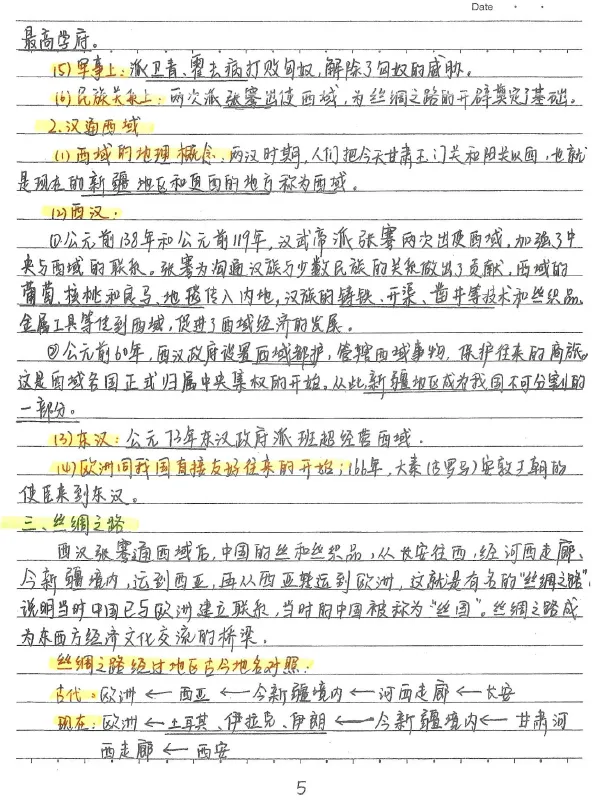 Date
最高学府。
(5)军事上:派卫青、霍去病打败匈奴,解除了匈奴的威胁。
(6)民族关系上:两次派张骞出使西域,为丝绸之路的开辟奠定了基础。
2.汉通西域
(1)西域的地理概念:两汉时期,人们把今天甘肃玉门关和阳关以西,也就
是现在的新疆地区和更西的地方称为西域。
(2)西汉.
①公元前138年和公元前119年,汉武帝派张骞两次出使西域,加强了中
央与西域的联系。张骞为沟通汉族与少数民族的关系做出了贡献,西域的
葡萄、核桃和良马、地毯传入内地,汉族的铸铁、开渠、凿井等技术和丝织品、
金属工具等传到西域,促进了西域经济的发展。
②公元前60年,西汉政府设置西域都护,管辖西域事物,保护往来的商旅。
这是西域各国正式归属中央集权的开始。从此新疆地区成为我国不可分割的
一部分。
(3)东汉:公元73年东汉政府派班超经营西域.
(4)欧洲同我国直接友好往来的开始;166年,大秦(古罗马)安敦王朝的
使臣来到东汉。
三、丝绸之路
西汉张骞通西域后,中国的丝和丝织品,从长安往西,经河西走廊、
今新疆境内,运到西亚,再从西亚转运到欧洲,这就是有名的"丝绸之路",
说明当时中国已与欧洲建立联系,当时的中国被称为"丝国"。丝绸之路成
为东西方经济文化交流的桥梁。
丝绸之路经过地区古今地名对照:
古代:欧洲←西亚←今新疆境内←河西走廊←长安
现在:欧洲←土耳其、伊拉克、伊朗←今新疆境内←甘肃河
西走廊←西安
5